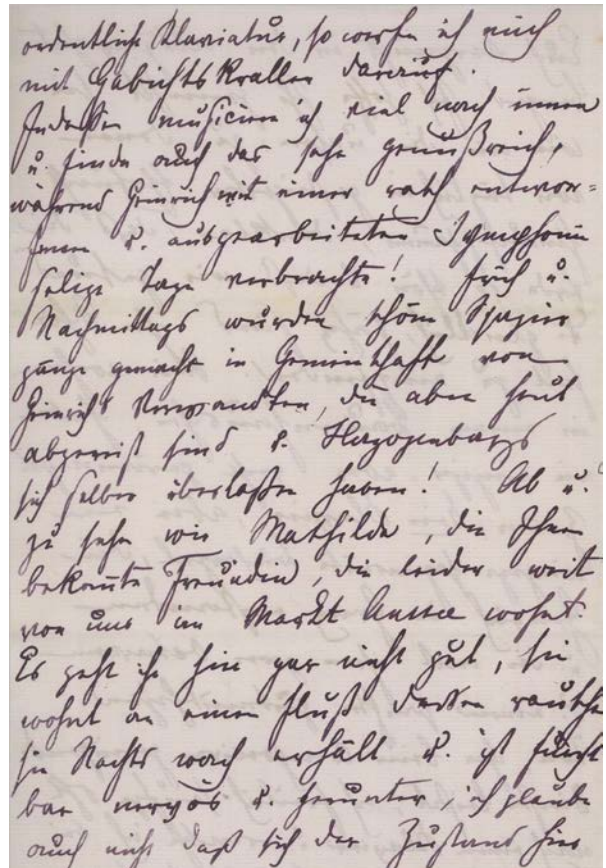 ordentliche Klaviatur, so werfe ich mich
mit Habichtskrallen darauf.
Indessen musicire ich viel nach innen
u. finde auch das sehr genußreich,
während Heinrich mit einer rasch entwor=
fenen u. ausgearbeiteten Symphonie
selige Tage verbrachte! Früh u.
Nachmittags wurden schöne Spazier
gänge gemacht in Gemeinschaft von
Heinrichs Verwandten, die aber heut
abgereist sind u. Herzogenbergs
sich selber überlaßen haben! Ab u.
zu sehn wir Mathilde, die Ihnen
bekannte Freundin, die leider weit
von uns im Markt Aussee wohnt.
Es geht ihr hier gar nicht gut, sie
wohnt an einem Fluß dessen rauschen
sie Nachts wach erhält u. ist furcht
bar nervös u. herunter, ich glaube
auch nicht daß sich der Zustand hier